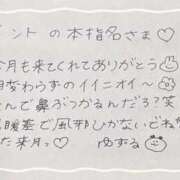 ントの本指名さま♡
今月も来てくれてありがとう
変わらずのイイニオイ〜
んで鼻ぶっかるんだろ?笑
暖差で風邪ひかないどねが
た来月っ♡ ゆずる